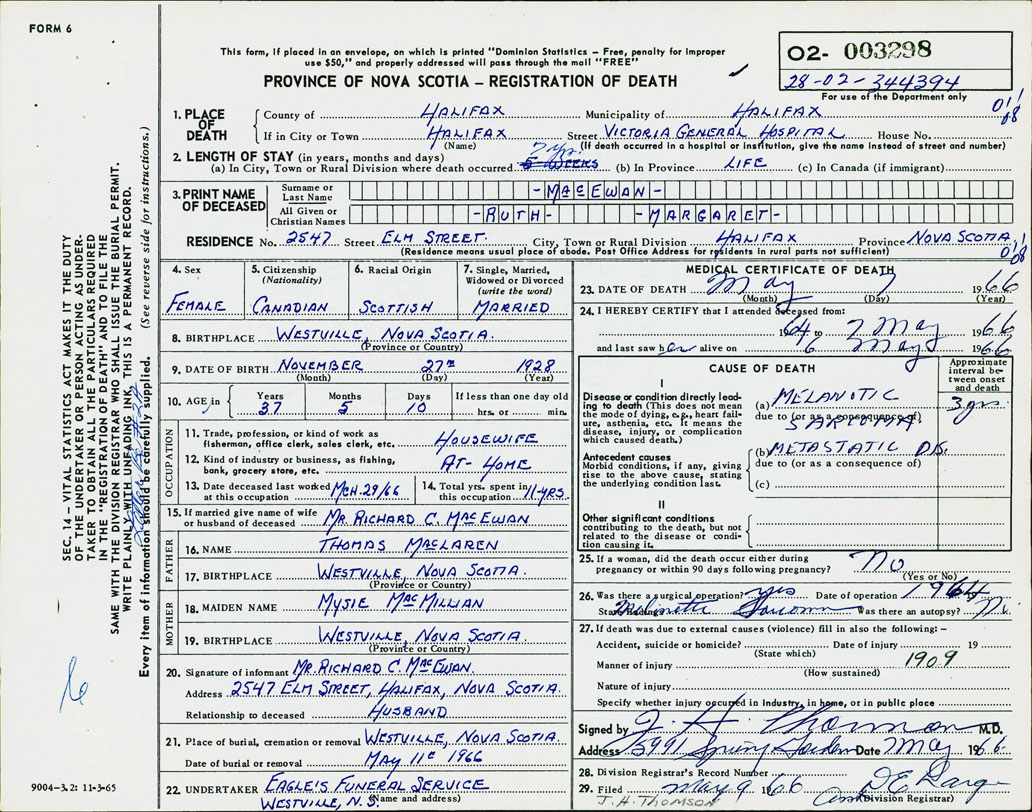 FORM 6
This form, if placed in an envelope, on which is printed "Dominion Statistics – Free, penalty for improper
use $50," and properly addressed will pass through the mail "FREE"
PROVINCE OF NOVA SCOTIA – REGISTRATION OF DEATH
02- 003298
28-02-344394
For use of the Department only
SEC. 14 – VITAL STATISTICS ACT MAKES IT THE DUTY
OF THE UNDERTAKER OR PERSON ACTING AS UNDER-
TAKER TO OBTAIN ALL THE PARTICULARS REQUIRED
IN THE "REGISTRATION OF DEATH" AND TO FILE THE
SAME WITH THE DIVISION REGISTRAR WHO SHALL ISSUE THE BURIAL PERMIT.
WRITE PLAINLY WITH UNFADING INK, THIS IS A PERMANENT RECORD.
Every item of information should be carefully supplied. (See reverse side for instructions.)
1. PLACE OF DEATH
County of HALIFAX Municipality of HALIFAX
If in City or Town HALIFAX Street VICTORIA GENERAL HOSPITAL House No.
(Name) (If death occurred in a hospital or institution, give the name instead of street and number)
2. LENGTH OF STAY (in years, months and days)
(a) In City, Town or Rural Division where death occurred 5 WEEKS 7 yrs. (b) In Province LIFE (c) In Canada (if immigrant)
3. PRINT NAME OF DECEASED
Surname or Last Name -MACEWAN-
All Given or Christian Names -RUTH- -MARGARET-
RESIDENCE No. 2547 Street ELM STREET. City, Town or Rural Division HALIFAX Province NOVA SCOTIA
(Residence means usual place of abode. Post Office Address for residents in rural parts not sufficient)
4. Sex
FEMALE
5. Citizenship
(Nationality)
CANADIAN
6. Racial Origin
SCOTTISH
7. Single, Married,
Widowed or Divorced
(write the word)
MARRIED
8. BIRTHPLACE WESTVILLE, NOVA SCOTIA.
(Province or Country)
9. DATE OF BIRTH NOVEMBER 27TH 1928
(Month) (Day) (Year)
10. AGE in Years 37 Months 5 Days 10 If less than one day old hrs. or min.
OCCUPATION
11. Trade, profession, or kind of work as
fisherman, office clerk, sales clerk, etc. HOUSEWIFE
12. Kind of industry or business, as fishing,
bank, grocery store, etc. AT- HOME
13. Date deceased last worked
at this occupation MCH. 29/66
14. Total yrs. spent in
this occupation 11-YRS.
15. If married give name of wife
or husband of deceased MR. RICHARD C. MACEWAN
FATHER
16. NAME THOMAS MACLAREN
17. BIRTHPLACE WESTVILLE, NOVA SCOTIA.
(Province or Country)
MOTHER
18. MAIDEN NAME MYSIE MACMILLIAN
19. BIRTHPLACE WESTVILLE, NOVA SCOTIA.
(Province or Country)
20. Signature of informant MR. RICHARD C. MACEWAN.
Address 2547 ELM STREET, HALIFAX, NOVA SCOTIA.
Relationship to deceased HUSBAND
21. Place of burial, cremation or removal WESTVILLE, NOVA SCOTIA.
Date of burial or removal MAY 11 1966
22. UNDERTAKER EAGLE'S FUNERAL SERVICE
(Name and address)
WESTVILLE, N.S.
9004-3.2: 11-3-65
MEDICAL CERTIFICATE OF DEATH
23. DATE OF DEATH May 7 1966
(Month) (Day) (Year)
24. I HEREBY CERTIFY that I attended deceased from:
1964 to 7 May 1966
and last saw her alive on 6 May 1966
CAUSE OF DEATH
Approximate interval between onset and death
I
Disease or condition directly lead-
ing to death (This does not mean
the mode of dying, e.g., heart fail-
ure, asthenia, etc. It means the
disease, injury, or complication
which caused death.)
(a) MELANOTIC
due to (or as a consequence of)
SARCOMA
3 yrs
Antecedent causes
Morbid conditions, if any, giving
rise to the above cause, stating
the underlying condition last.
(b) METASTATIC DIS.
due to (or as a consequence of)
(c)
II
Other significant conditions
contributing to the death, but not
related to the disease or condi-
tion causing it.
25. If a woman, did the death occur either during
pregnancy or within 90 days following pregnancy? No
(Yes or No)
26. Was there a surgical operation? yes Date of operation 1964
State findings Melanotic Sarcoma Was there an autopsy? No
27. If death was due to external causes (violence) fill in also the following:–
Accident, suicide or homicide? Date of injury 19
(State which)
Manner of injury 1909
(How sustained)
Nature of injury
Specify whether injury occurred in industry, in home, or in public place
Signed by J. H. Thomson M.D.
Address 5991 Spring Garden Date May 1966
28. Division Registrar's Record Number
29. Filed May 9 1966
(Division Registrar)
J. H. THOMSON